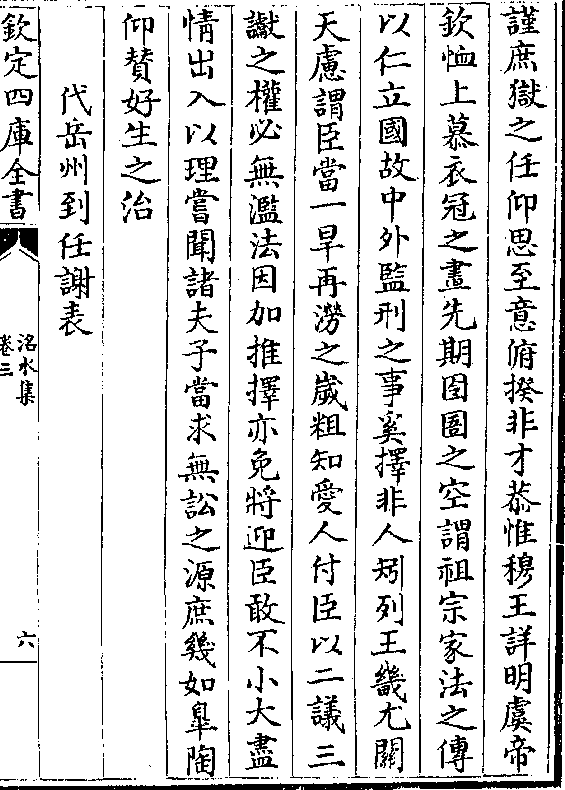 謹庶獄之任仰思至意俯揆非才恭惟穆王詳明虞帝
欽恤上慕衣冠之畫先期囹圄之空謂祖宗家法之傳
以仁立國故中外監刑之事奚擇非人矧列王畿尤關
天慮謂臣當一旱再澇之歲粗知愛人付臣以二議三
讞之權必無濫法因加推擇亦免將迎臣敢不小大盡
情出入以理嘗聞諸夫子當求無訟之源庶幾如臯陶
仰賛好生之治
代岳州到任謝表
欽定四庫全書
洺水集
卷三
六